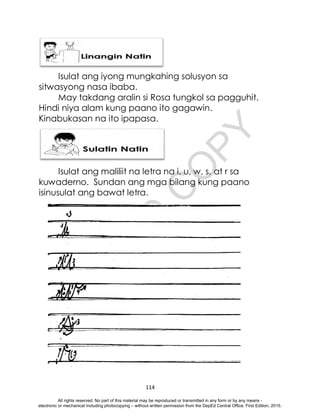 Linangin Natin
Isulat ang iyong mungkahing solusyon sa
sitwasyong nasa ibaba.
May takdang aralin si Rosa tungkol sa pagguhit.
Hindi niya alam kung paano ito gagawin.
Kinabukasan na ito ipapasa.
Sulatin Natin
Isulat ang maliliit na letra na i, u, w, s, at r sa
kuwaderno. Sundan ang mga bilang kung paano
isinusulat ang bawat letra.
COPY
114
All rights reserved. No part of this material may be reproduced or transmitted in any form or by any means -
electronic or mechanical including photocopying – without written permission from the DepEd Central Office. First Edition, 2015.